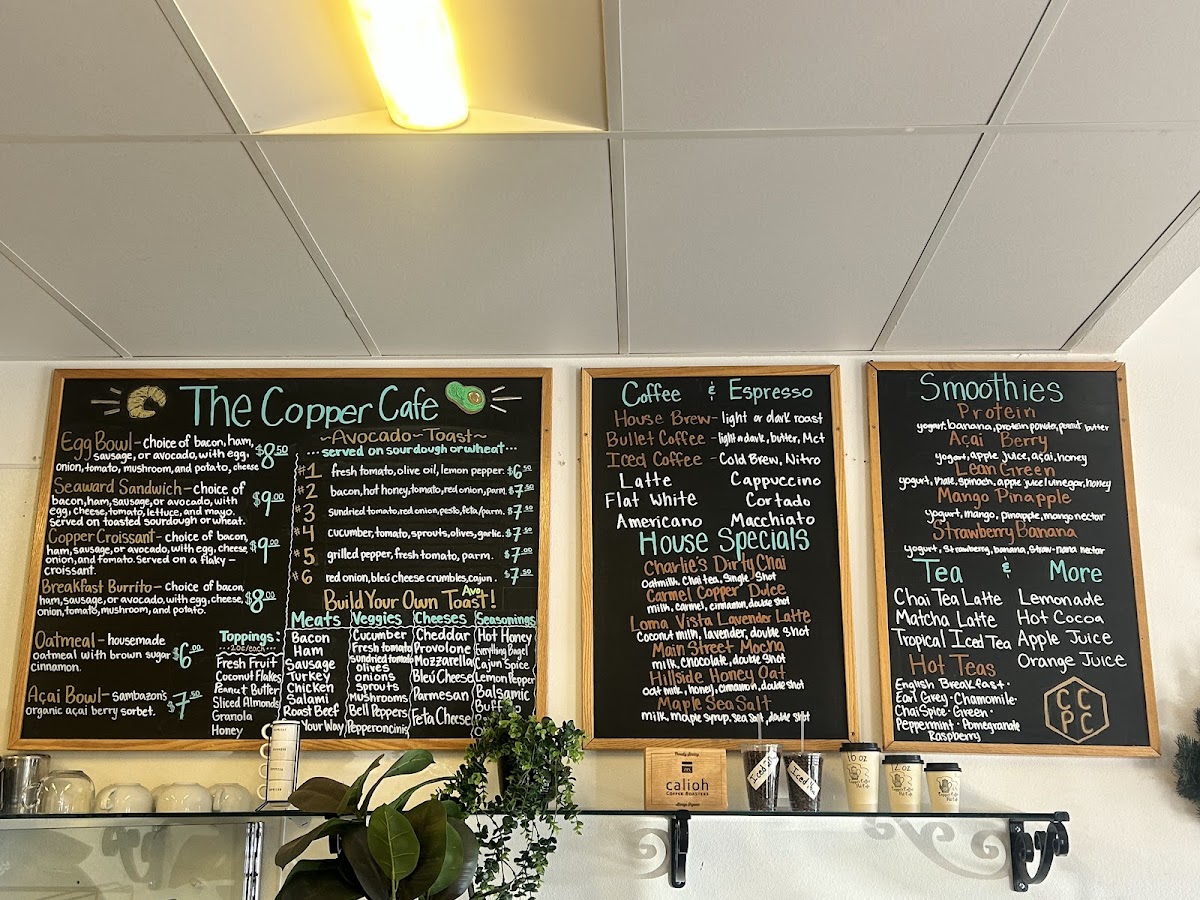 The Copper Cafe
Egg Bowl - choice of bacon, ham,
sausage, or avocado, with egg,
onion, tomato, mushroom, and potato, cheese
$8.50
Seaward Sandwich - choice of
bacon, ham, sausage, or avocado, with
egg, cheese, tomato, lettuce, and mayo.
served on toasted sourdough or wheat.
$9.00
Copper Croissant - choice of bacon,
ham, sausage, or avocado, with egg, cheese,
onion, and tomato. Served on a flaky -
croissant.
$9.00
Breakfast Burrito - choice of bacon,
ham, sausage, or avocado, with egg, cheese,
onion, tomato, mushroom, and potato.
$8.00
Oatmeal - housemade
oatmeal with brown sugar
cinnamon.
$6.00
Açai Bowl - sambazon's
organic açai berry sorbet.
$7.50
Toppings:
Fresh Fruit
Coconut Flakes
Peanut Butter
Sliced Almonds
Granola
Honey
~Avocado~Toast~
...served on sourdough or wheat...
#1 fresh tomato, olive oil, lemon pepper. $6.50
#2 bacon, hot honey, tomato, red onion, parm. $7.50
#3 sundried tomato, red onion, pesto, feta/parm. $7.50
#4 cucumber, tomato, sprouts, olives, garlic. $7.50
#5 grilled pepper, fresh tomato, parm. $7.00
#6 red onion, bleu cheese crumbles, cajun. $7.50
Build Your Own Avo Toast!
Meats
Bacon
Ham
Sausage
Turkey
Chicken
Salami
Roast Beef
Your Way
Veggies
Cucumber
Fresh tomato
sundried tomato
olives
onions
sprouts
Mushrooms
Bell Peppers
Pepperoncinis
Cheeses
Cheddar
Provolone
Mozzarella
Bleu Cheese
Parmesan
Feta Cheese
Seasonings
Hot Honey
Everything Bagel
Cajun Spice
Lemon Pepper
Balsamic
Coffee & Espresso
House Brew - light or dark roast
Bullet Coffee - light or dark, butter, Mct
Iced Coffee - Cold Brew, Nitro
Latte Cappuccino
Flat White Cortado
Americano Macchiato
House Specials
Charlie's Dirty Chai
Oatmilk, Chai tea, Single Shot
Carmel Copper Dulce
milk, carmel, cinnamon, double shot
Loma Vista Lavender Latte
Coconut milk, lavender, double shot
Main Street Mocha
milk, chocolate, double shot
Hillside Honey Oat
oat milk, honey, cinnamon, double shot
Maple Sea Salt
milk, maple syrup, sea salt, double shot
Smoothies
Protein
yogurt, banana, protein powder, peanut butter
Açai Berry
yogurt, apple juice, açai, honey
Lean Green
yogurt, kale, spinach, apple juice/vinegar, honey
Mango Pinapple
yogurt, mango, pinapple, mango nectar
Strawberry Banana
yogurt, strawberry, banana, straw-nana nectar
Tea & More
Chai Tea Latte
Matcha Latte
Tropical Iced Tea
Lemonade
Hot Cocoa
Apple Juice
Orange Juice
Hot Teas
English Breakfast ·
Earl Grey · Chamomile ·
Chai Spice · Green ·
Peppermint · Pomegranate
Raspberry
CC
PC
calioh
COFFEE ROASTERS
Iced
Iced
10 oz
12 oz